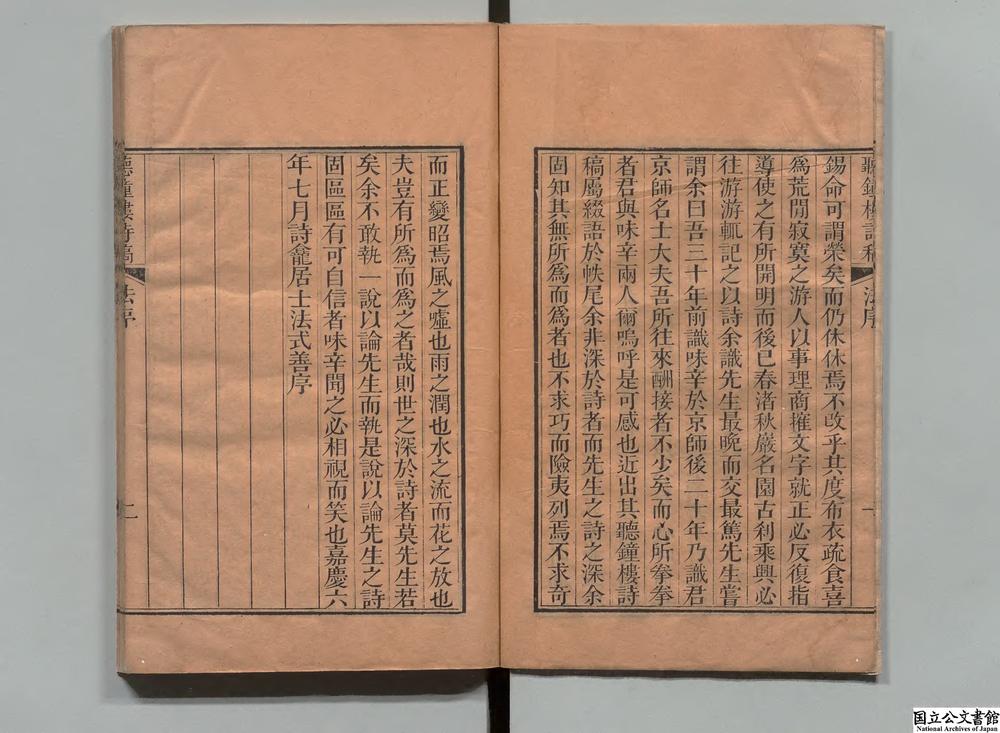 聽鐘樓詩稿 法序 一
錫命可謂榮矣而仍休休焉不改乎其度布衣疏食喜
為荒閒寂寞之游人以事理商搉文字就正必反復指
導使之有所開明而後已春渚秋巖名園古刹乘興必
往游游輒記之以詩余識先生最晚而交最篤先生嘗
謂余曰吾三十年前識味辛於京師後二十年乃識君
京師名士大夫吾所往來酬接者不少矣而心所拳拳
者君與味辛兩人爾嗚呼是可感也近出其聽鐘樓詩
稿屬綴語於帙尾余非深於詩者而先生之詩之深余
固知其無所為而為者也不求巧而險夷列焉不求奇
而正變昭焉風之噓也雨之潤也水之流而花之放也
夫豈有所為而為之者哉則世之深於詩者莫先生若
矣余不敢執一說以論先生而執是說以論先生之詩
固區區有可自信者味辛聞之必相視而笑也嘉慶六
年七月詩龕居士法式善序
聽鐘樓詩稿 法序 二
国立公文書館
National Archives of Japan